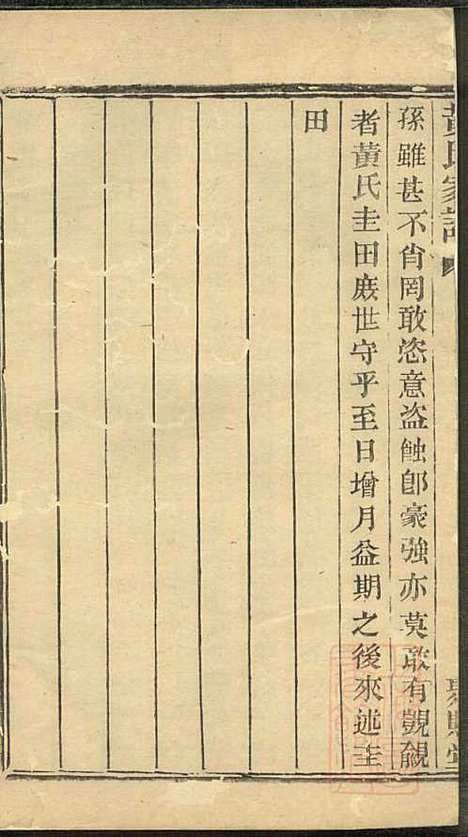 黃氏家譜
孫雖甚不肖罔敢恣意盜蝕卽豪強亦莫敢有覬覦
者黃氏圭田庶世守乎至日增月益期之後來述圭
田